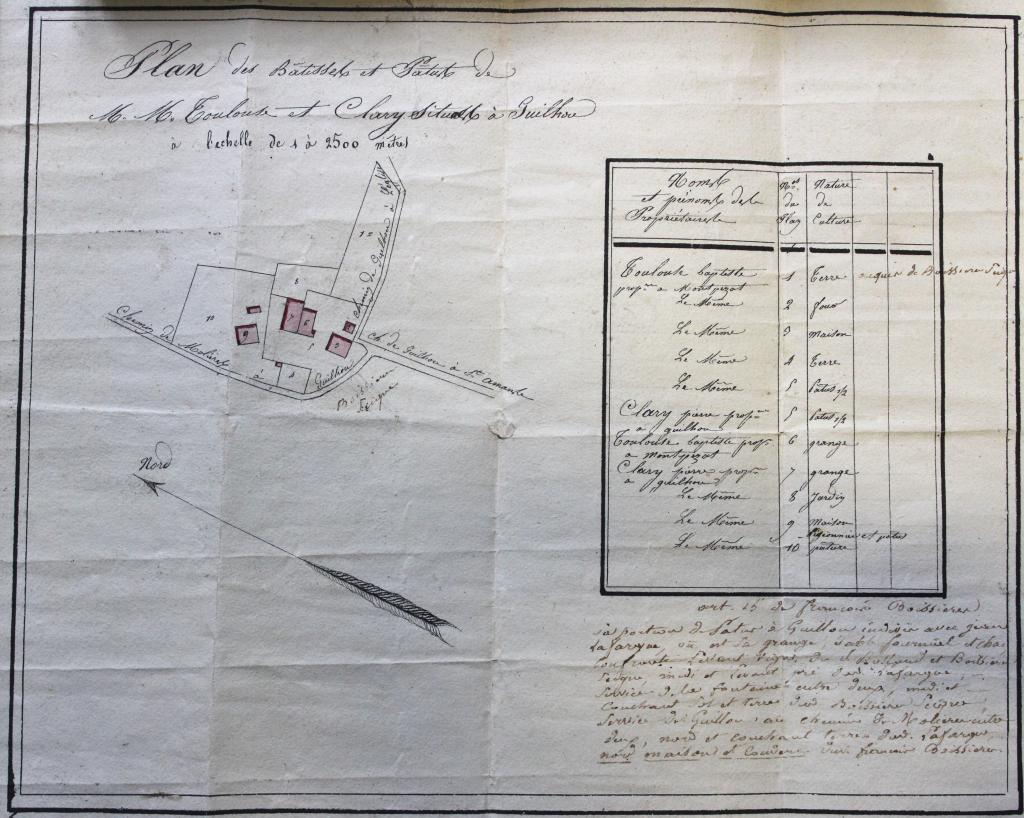 Plan des Batisses et Patus de
M. M. Toulouse et Clary situés à Guilhou
à l'echelle de 1 à 2500 mètres
12
Chemin de Guilhou à l'église
8
10
7
6
9
3
5
4
Chemin de Molieres à Guilhou
Ch. de Guilhou à St. Amant
Boissieres
Nord
Noms et prénoms des Propriétaires
Nos du Plan
Nature de Culture
Toulouse baptiste 1 Terre acquis de Boissiere
propre a Montpezat
Le Même 2 four
Le Même 3 maison
Le Même 4 Terre
Le Même 5 Patus 1/2
Clary pierre propre 5 Patus 1/2
a guilhou
Toulouse baptiste propre 6 grange
a montpezat
Clary pierre propre 7 grange
a guilhou
Le Même 8 Jardin
Le Même 9 Maison
pigeonnier et patus
Le Même 10 pature
art. 15 de francois Boissieres
sa portion de Patus à Guillou indivis avec
Lafargue, où est sa grange, fourniel et
Levant vigne, du et Boissiere
midi et Levant pré dud. Lafargue,
Service de la fontaine entre deux, midi et
Couchant sol et terre dud Boissiere
Service de Guillou au chemin de Molieres entre
deux, nord et couchant terres dud. Lafargue,
nord, maison et francois Boissieres.